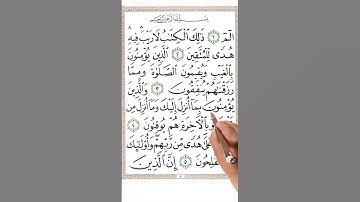 بِسْمِ اللَّهِ الرَّحْمَٰنِ الرَّحِيمِ
الٓمٓ ١ ذَٰلِكَ ٱلْكِتَٰبُ لَا رَيْبَ ۛ فِيهِ ۛ
هُدًى لِّلْمُتَّقِينَ ٢ ٱلَّذِينَ يُؤْمِنُونَ
بِٱلْغَيْبِ وَيُقِيمُونَ ٱلصَّلَوٰةَ وَمِمَّا
رَزَقْنَٰهُمْ يُنفِقُونَ ٣ وَٱلَّذِينَ
يُؤْمِنُونَ بِمَآ أُنزِلَ إِلَيْكَ وَمَآ أُنزِلَ مِن
بِٱلْءَاخِرَةِ هُمْ يُوقِنُونَ ٤
عَلَىٰ هُدًى مِّن رَّبِّهِمْ وَأُو۟لَٰٓئِكَ
ٱلْمُفْلِحُونَ ٥ إِنَّ ٱلَّذِينَ